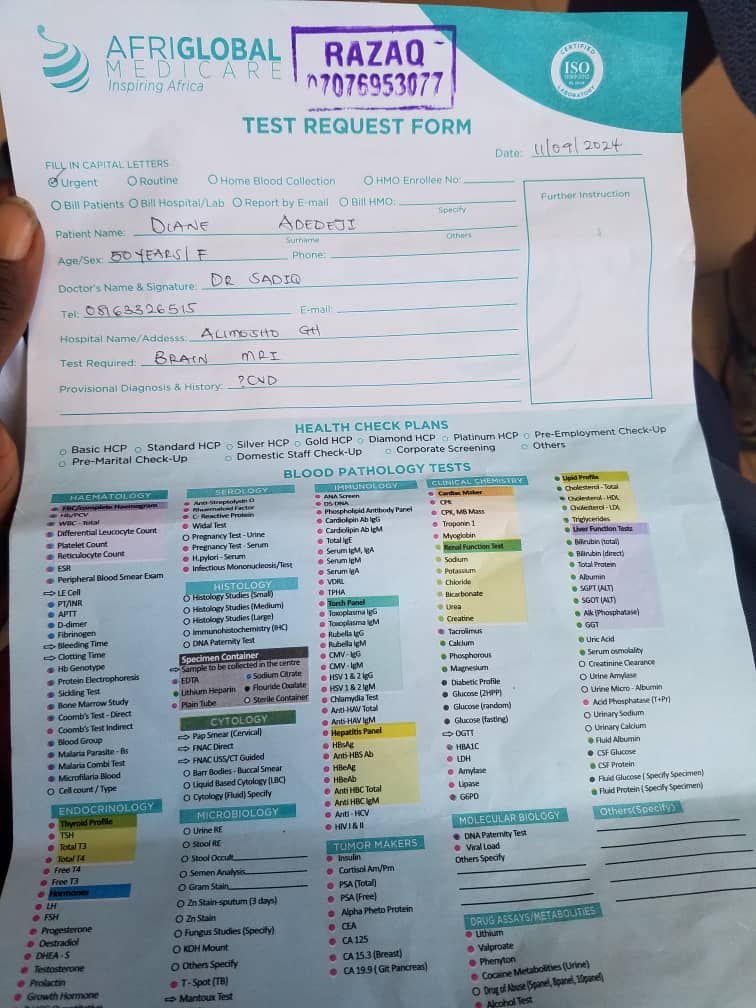 AFRIGLOBAL
MEDICARE
Inspiring Africa
RAZAQ
07076953077
CERTIFIED
ISO
LABORATORY
TEST REQUEST FORM
Date: 11/09/2024
FILL IN CAPITAL LETTERS
Urgent Routine Home Blood Collection HMO Enrollee No:
Bill Patients Bill Hospital/Lab Report by E-mail Bill HMO:
Specify
Further Instruction
Patient Name: DIANE ADEDEJI
Surname Others
Age/Sex: 50 YEARS/F Phone:
Doctor's Name & Signature: DR SADIQ
Tel: 08163326515 E-mail:
Hospital Name/Addesss: ALIMOSHO GH
Test Required: BRAIN MRI
Provisional Diagnosis & History: ?CVD
HEALTH CHECK PLANS
Basic HCP Standard HCP Silver HCP Gold HCP Diamond HCP Platinum HCP Pre-Employment Check-Up
Pre-Marital Check-Up Domestic Staff Check-Up Corporate Screening Others
BLOOD PATHOLOGY TESTS
HAEMATOLOGY
FBC/complete Haemogram
Hb/PCV
WBC - Total
Differential Leucocyte Count
Platelet Count
Reticulocyte Count
ESR
Peripheral Blood Smear Exam
LE Cell
PT/INR
APTT
D-dimer
Fibrinogen
Bleeding Time
Clotting Time
Hb Genotype
Protein Electrophoresis
Sickling Test
Bone Marrow Study
Coomb's Test - Direct
Coomb's Test Indirect
Blood Group
Malaria Parasite - Bs
Malaria Combi Test
Microfilaria Blood
Cell count / Type
ENDOCRINOLOGY
Thyroid Profile
TSH
Total T3
Total T4
Free T4
Free T3
Hormones
LH
FSH
Progesterone
Destradiol
DHEA - S
Testosterone
Prolactin
Growth Hormone
SEROLOGY
Anti-Streptolysin O
Rheumatoid Factor
C- Reactive Protein
Widal Test
Pregnancy Test - Urine
Pregnancy Test - Serum
H.pylori - Serum
Infectious Mononucleosis/Test
HISTOLOGY
Histology Studies (Small)
Histology Studies (Medium)
Histology Studies (Large)
Immunohistochemistry (IHC)
DNA Paternity Test
Specimen Container
Sample to be collected in the centre
EDTA Sodium Citrate
Lithium Heparin Flouride Oxalate
Plain Tube Sterile Container
CYTOLOGY
Pap Smear (Cervical)
FNAC Direct
FNAC USS/CT Guided
Barr Bodies - Buccal Smear
Liquid Based Cytology (LBC)
Cytology (Fluid) Specify
MICROBIOLOGY
Urine RE
Stool RE
Stool Occult
Semen Analysis
Gram Stain
Zn Stain-sputum (3 days)
Zn Stain
Fungus Studies (Specify)
KOH Mount
Others Specify
T - Spot (TB)
Mantoux Test
IMMUNOLOGY
ANA Screen
DS-DNA
Phospholipid Antibody Panel
Cardiolipin Ab IgG
Cardiolipin Ab IgM
Total IgE
Serum IgM, IgA
Serum IgM
Serum IgA
VDRL
TPHA
Torch Panel
Toxoplasma IgG
Toxoplasma IgM
Rubella IgG
Rubella IgM
CMV - IgG
CMV - IgM
HSV 1 & 2 IgG
HSV 1 & 2 IgM
Chlamydia Test
Anti-HAV Total
Anti-HAV IgM
Hepatitis Panel
HBsAg
Anti-HBS Ab
HBeAg
HBeAb
Anti HBC Total
Anti HBC IgM
Anti - HCV
HIV I & II
TUMOR MAKERS
Insulin
Cortisol Am/Pm
PSA (Total)
PSA (Free)
Alpha Pheto Protein
CEA
CA 125
CA 15.3 (Breast)
CA 19.9 ( Git Pancreas)
CLINICAL CHEMISTRY
Cardiac Maker
CPK
CPK, MB Mass
Troponin 1
Myoglobin
Renal Function Test
Sodium
Potassium
Chloride
Bicarbonate
Urea
Creatine
Tacrolimus
Calcium
Phosphorous
Magnesium
Diabetic Profile
Glucose (2HPP)
Glucose (random)
Glucose (fasting)
OGTT
HBA1C
LDH
Amylase
Lipase
G6PD
MOLECULAR BIOLOGY
DNA Paternity Test
Viral Load
Others Specify
DRUG ASSAYS/METABOLITIES
Lithium
Valproate
Phenyton
Cocaine Metabolities (Urine)
Drug of Abuse (5panel, 8panel, 10panel)
Alcohol Test
Lipid Profile
Cholesterol - Total
Cholesterol - HDL
Cholesterol - LDL
Triglycerides
Liver Function Tests
Bilirubin (total)
Bilirubin (direct)
Total Protein
Albumin
SGPT (ALT)
SGOT (ALT)
Alk (Phosphatase)
GGT
Uric Acid
Serum osmolality
Creatinine Clearance
Urine Amylase
Urine Micro - Albumin
Acid Phosphatase (T+Pr)
Urinary Sodium
Urinary Calcium
Fluid Albumin
CSF Glucose
CSF Protein
Fluid Glucose ( Specify Specimen)
Fluid Protein ( Specify Specimen)
Others(Specify)